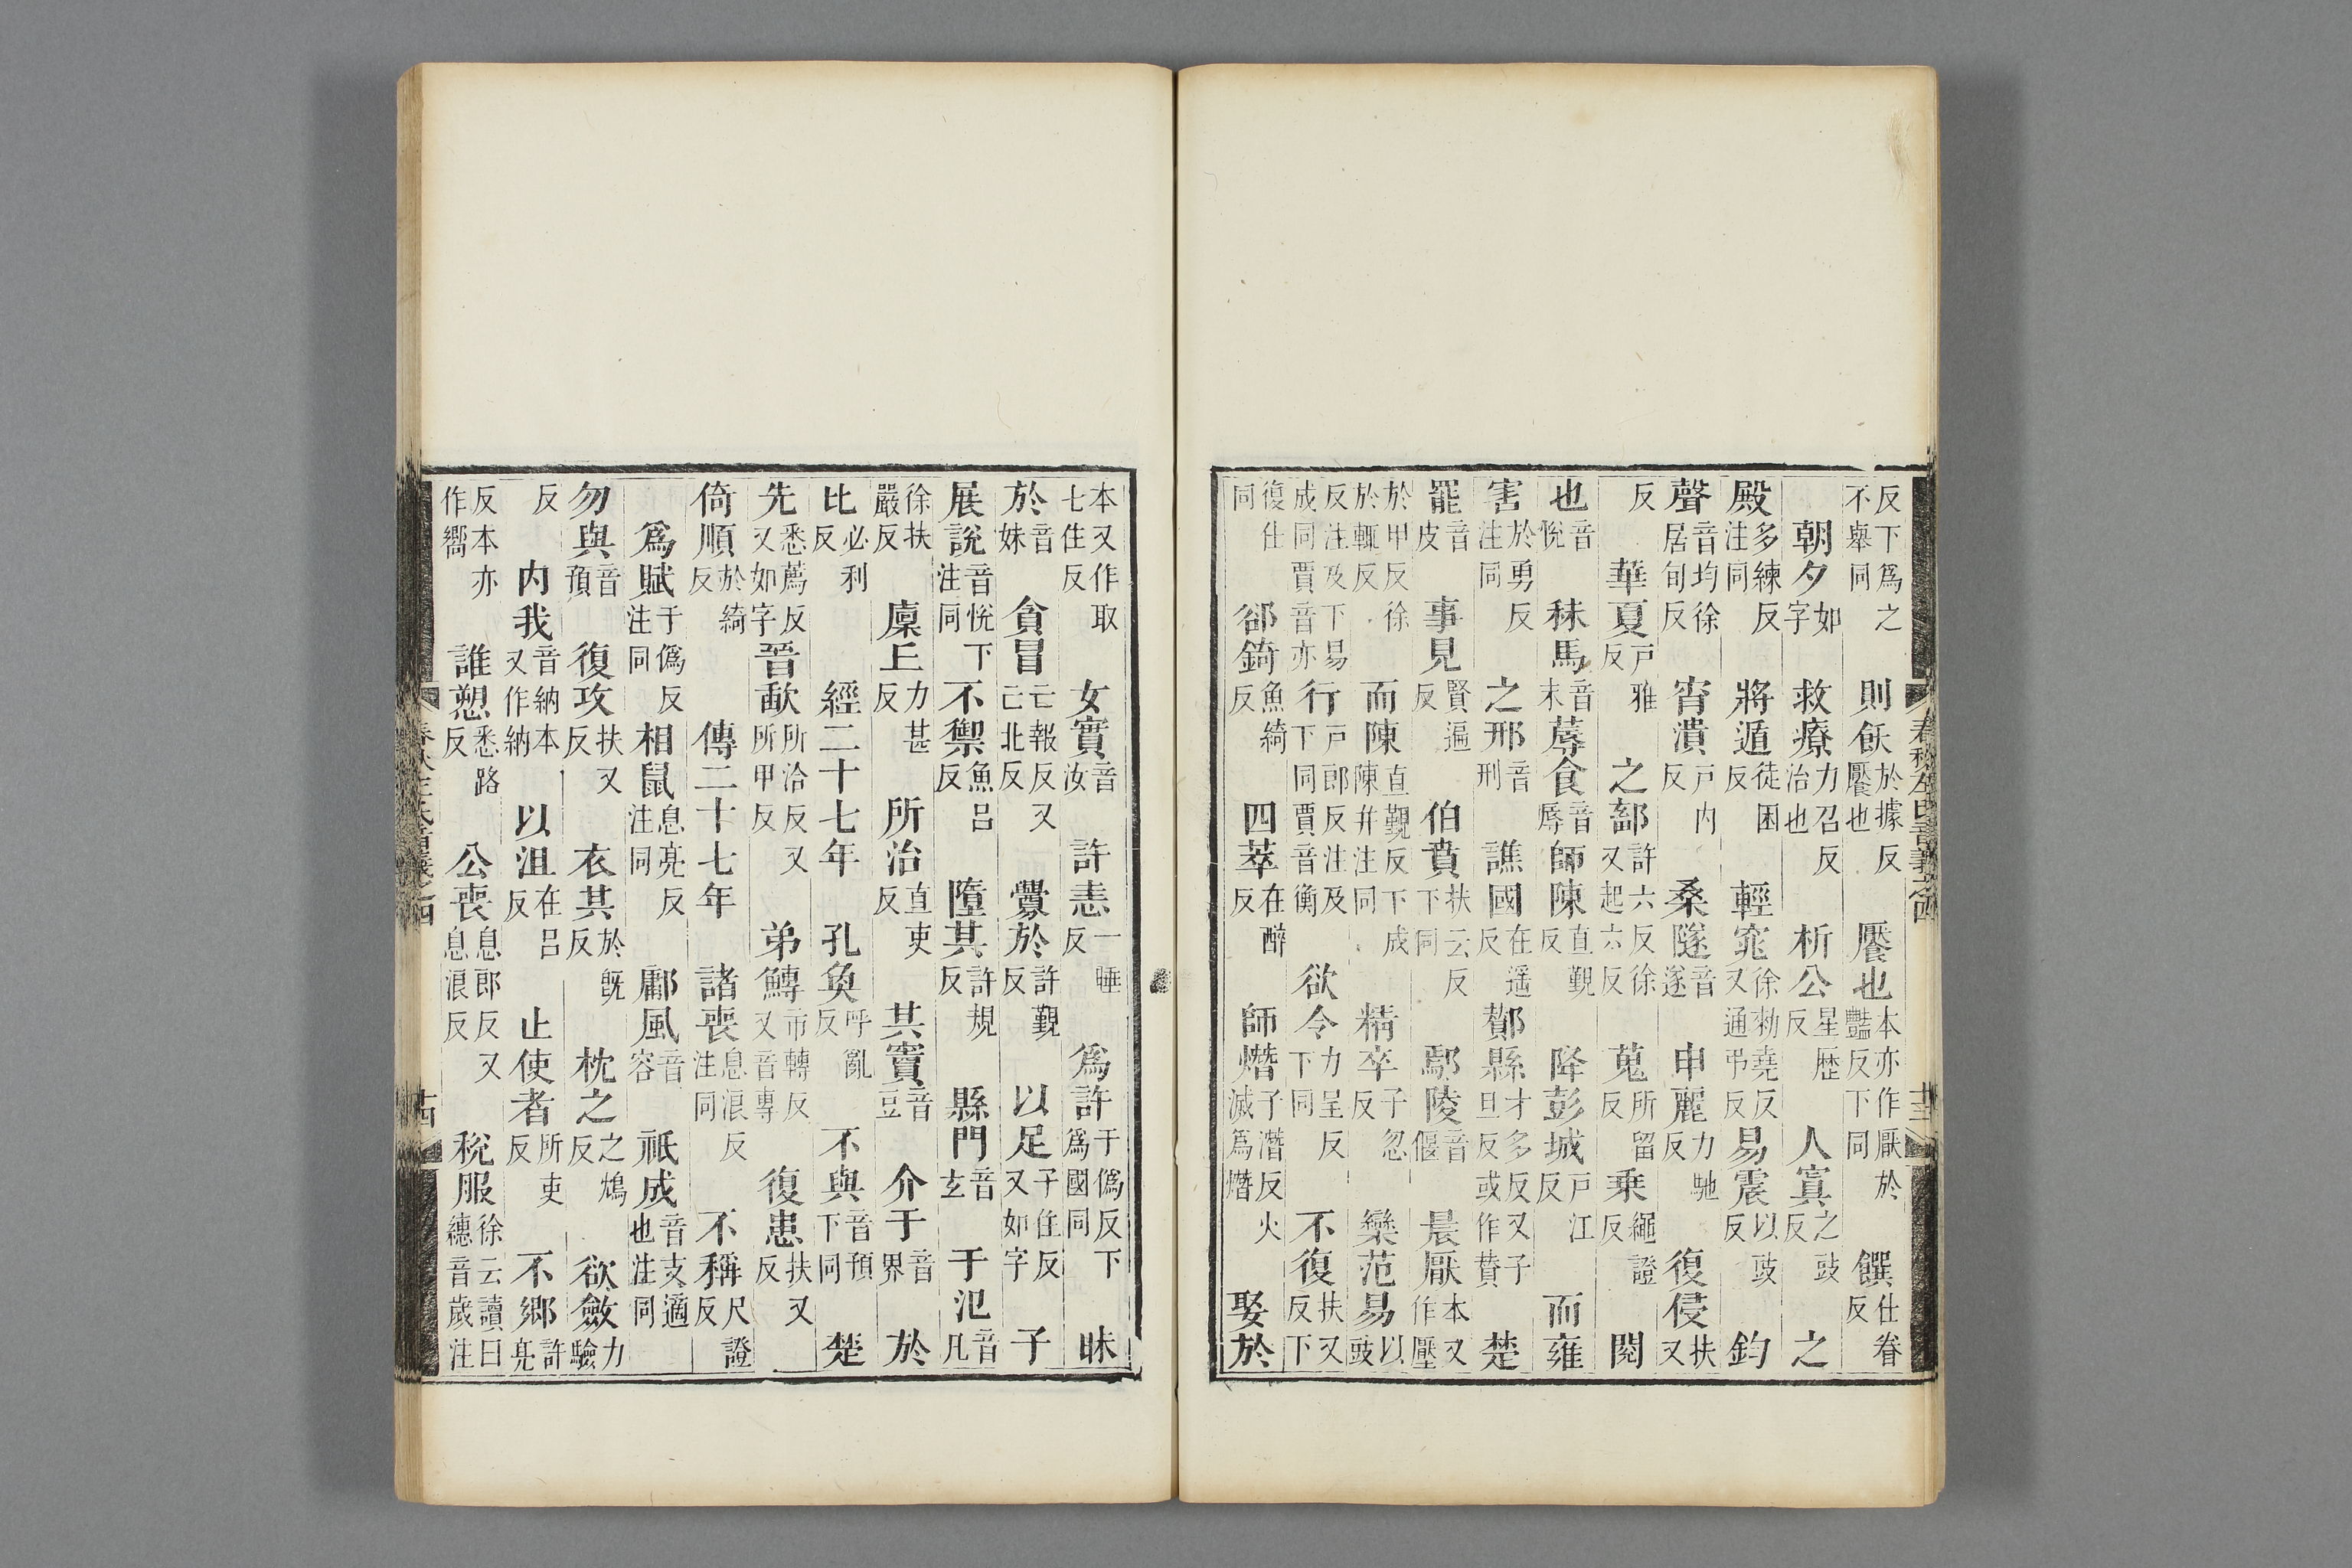 春秋左氏音義之四 十三
反下為之不舉同 則飫於據反饜也 饜也本亦作厭於豔反下同 饌仕眷反
朝夕如字 救療力召反治也 析公星歷反 人寘之豉反 之
殿多練反注同 將遁徒困反 輕窕徐勑堯反又通弔反 易震以豉反 鈞
聲音均徐居旬反 宵潰戶內反 桑隧音遂 申麗力馳反 復侵扶又
反 華夏戶雅反 之鄐許六反徐又起六反 蒐所留反 乘繩證反 閱
也音悅 秣馬音末 蓐食音辱 師陳直覲反 降彭城戶江反 而雍
害於勇反注同 之邢音刑 譙國在遥反 鄼縣才多反又子旦反或作贊 楚
罷音皮 事見賢遍反 伯賁扶云反下同 鄢陵音偃 晨厭本又作壓
於甲反徐於輒反 而陳直覲反下成陳并注同 精卒子忽反 欒范易以豉
反注及下易成同賈音亦 行戶郎反注及下同賈音衡 欲令力呈反下同 不復扶又反下
復仕同 郤錡魚綺反 四萃在醉反 師熸子潛反火滅為熸 娶於
本又作取七住反 女實音汝 許恚一睡反 為許于偽反下為國同 昧
於音妹 貪冒亡報反又亡北反 釁於許覲反 以足子住反又如字 子
展說音悅下注同 不禦魚呂反 墮其許規反 縣門音玄 于氾音凡
徐扶嚴反 廩上力甚反 所治直吏反 其竇音豆 介于音界 於
比必利反 經二十七年 孔奐呼亂反 不與音預下同 楚
先悉薦反又如字 晉歃所洽反又所甲反 弟鱄市轉反又音專 復患扶又反
倚順於綺反 傳二十七年 諸喪息浪反注同 不稱尺證反
為賦于偽反注同 相鼠息亮反注同 鄘風音容 祇成音支適也注同
勿與音預 復攻扶又反 衣其於既反 枕之之鴆反 欲斂力驗
反 內我音納本又作納 以沮在呂反 止使者所吏反 不鄉許亮
反本亦作嚮 誰愬悉路反 公喪息郎反又息浪反 稅服徐云讀曰繐音歲注
春秋左氏音義之四 十四